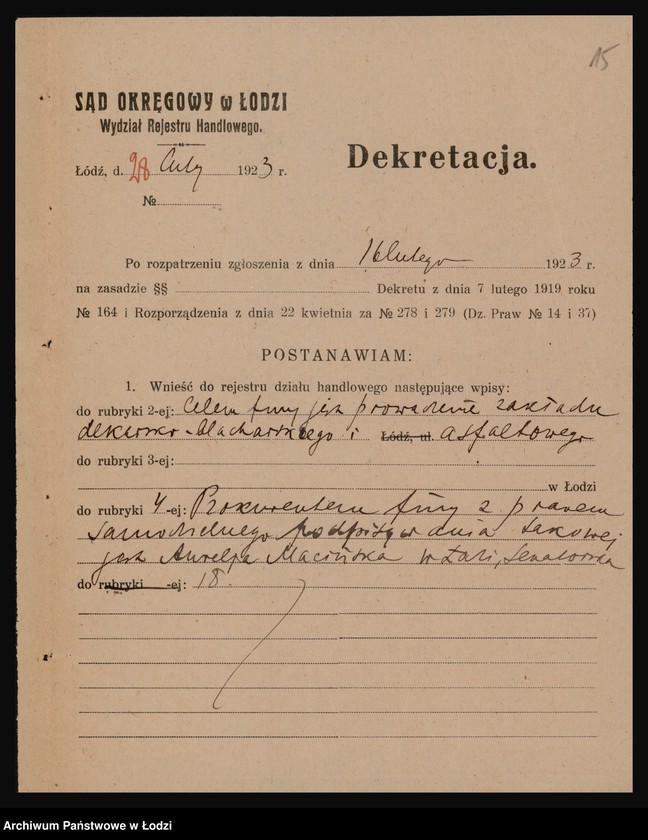 15
SĄD OKRĘGOWY w ŁODZI
Wydział Rejestru Handlowego.
Dekretacja.
Łódź, d. 28 Luty 1923 r.
№
Po rozpatrzeniu zgłoszenia z dnia 16 lutego 1923 r.
na zasadzie §§ Dekretu z dnia 7 lutego 1919 roku
№ 164 i Rozporządzenia z dnia 22 kwietnia za № 278 i 279 (Dz. Praw № 14 i 37)
POSTANAWIAM:
1. Wnieść do rejestru działu handlowego następujące wpisy:
do rubryki 2-ej: Celem firmy jest prowadzenie zakładu
dekarsko-blacharskiego i Łódź, ul. asfaltowego
do rubryki 3-ej:
w Łodzi
do rubryki 4-ej: Prokurentem firmy z prawem
samodzielnego podpisywania takowej
jest Macińska w Łodzi, Senatorska
do rubryki -ej: 18.
Archiwum Państwowe w Łodzi